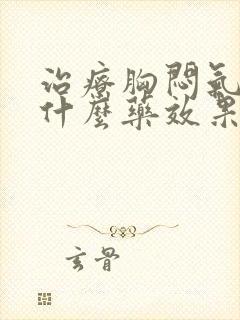 治療胸悶氣
什麼藥效果
玄骨